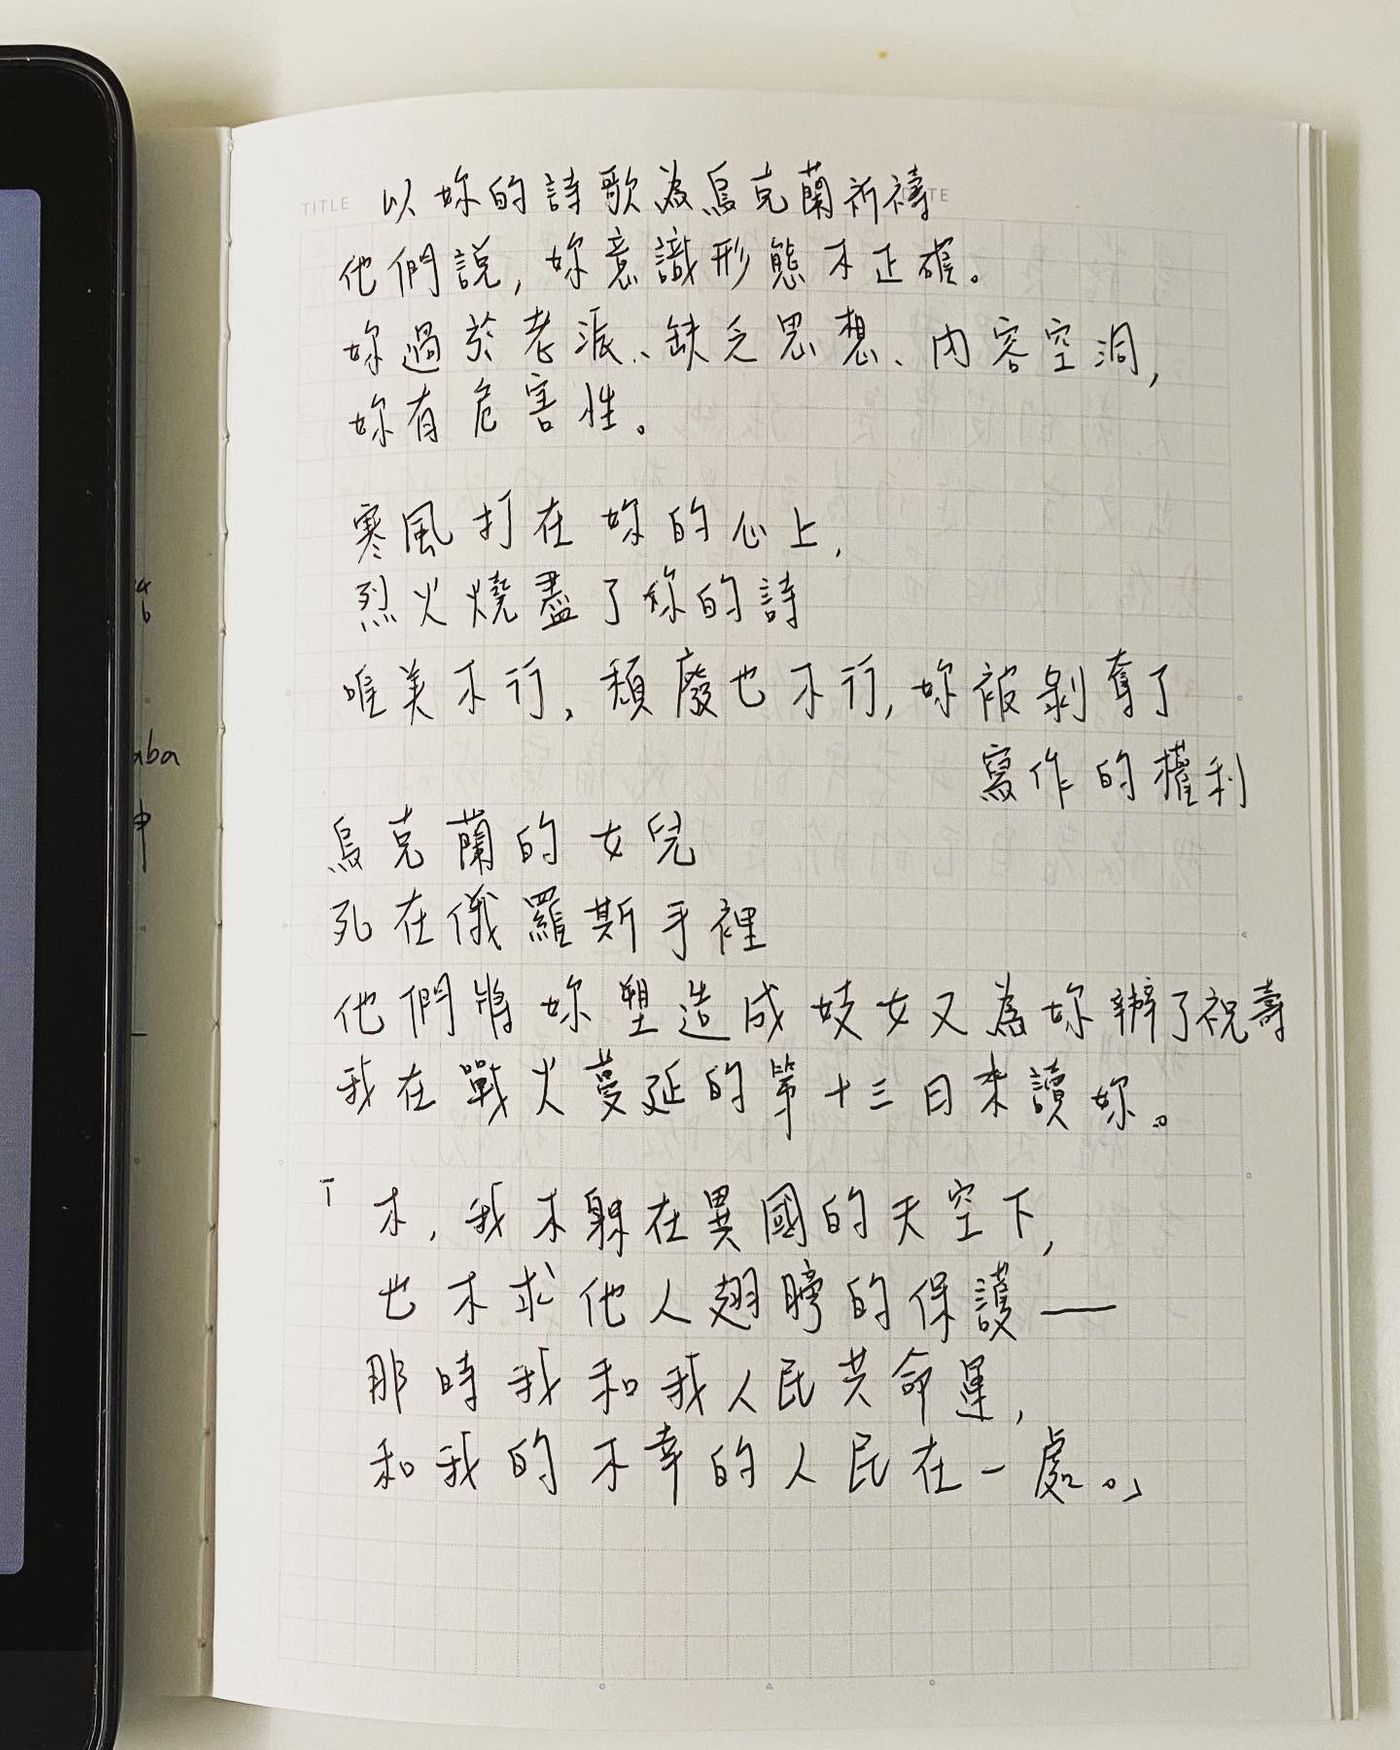 TITLE
以妳的詩歌為烏克蘭祈禱
他們說,妳意識形態不正確。
妳過於老派、缺乏思想、內容空洞,
妳有危害性。
寒風打在妳的心上,
烈火燒盡了妳的詩
唯美不行,頹廢也不行,妳被剝奪了
寫作的權利
烏克蘭的女兒
死在俄羅斯手裡
他們將妳塑造成妓女又為妳辦了祝壽
我在戰火蔓延的第十三日來讀妳。
「不,我不躲在異國的天空下,
也不求他人翅膀的保護——
那時我和我人民共命運,
和我的不幸的人民在一處。」
aba